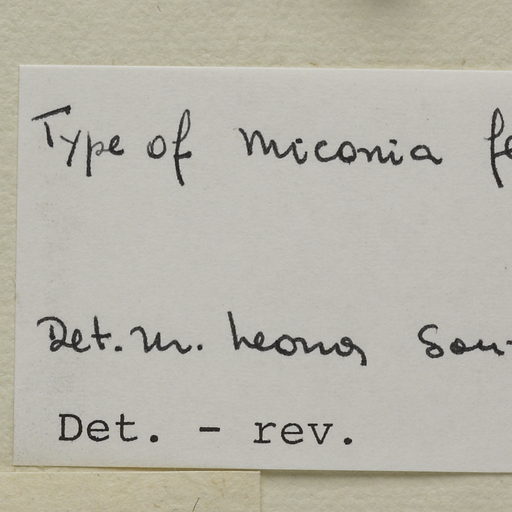 Type of Miconia fe
Det. M. Leoney Sou-
Det. - rev.